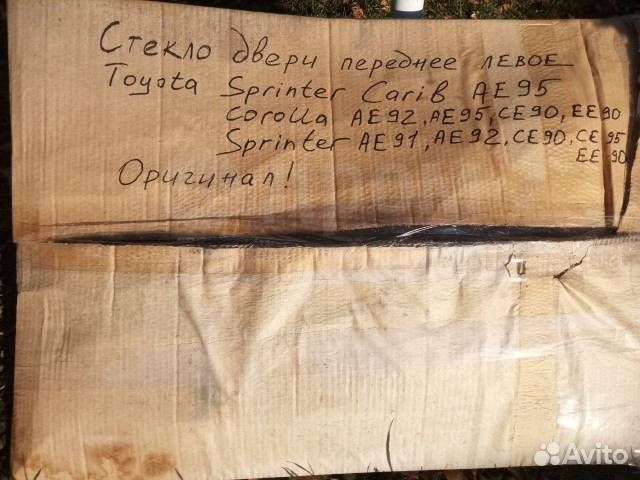 Стекло двери переднее ЛЕВОЕ
Toyota Sprinter Carib AE95
Corolla AE92, AE95, CE90, EE90
Sprinter AE91, AE92, CE90, CE95
EE90
Оригинал!
Avito